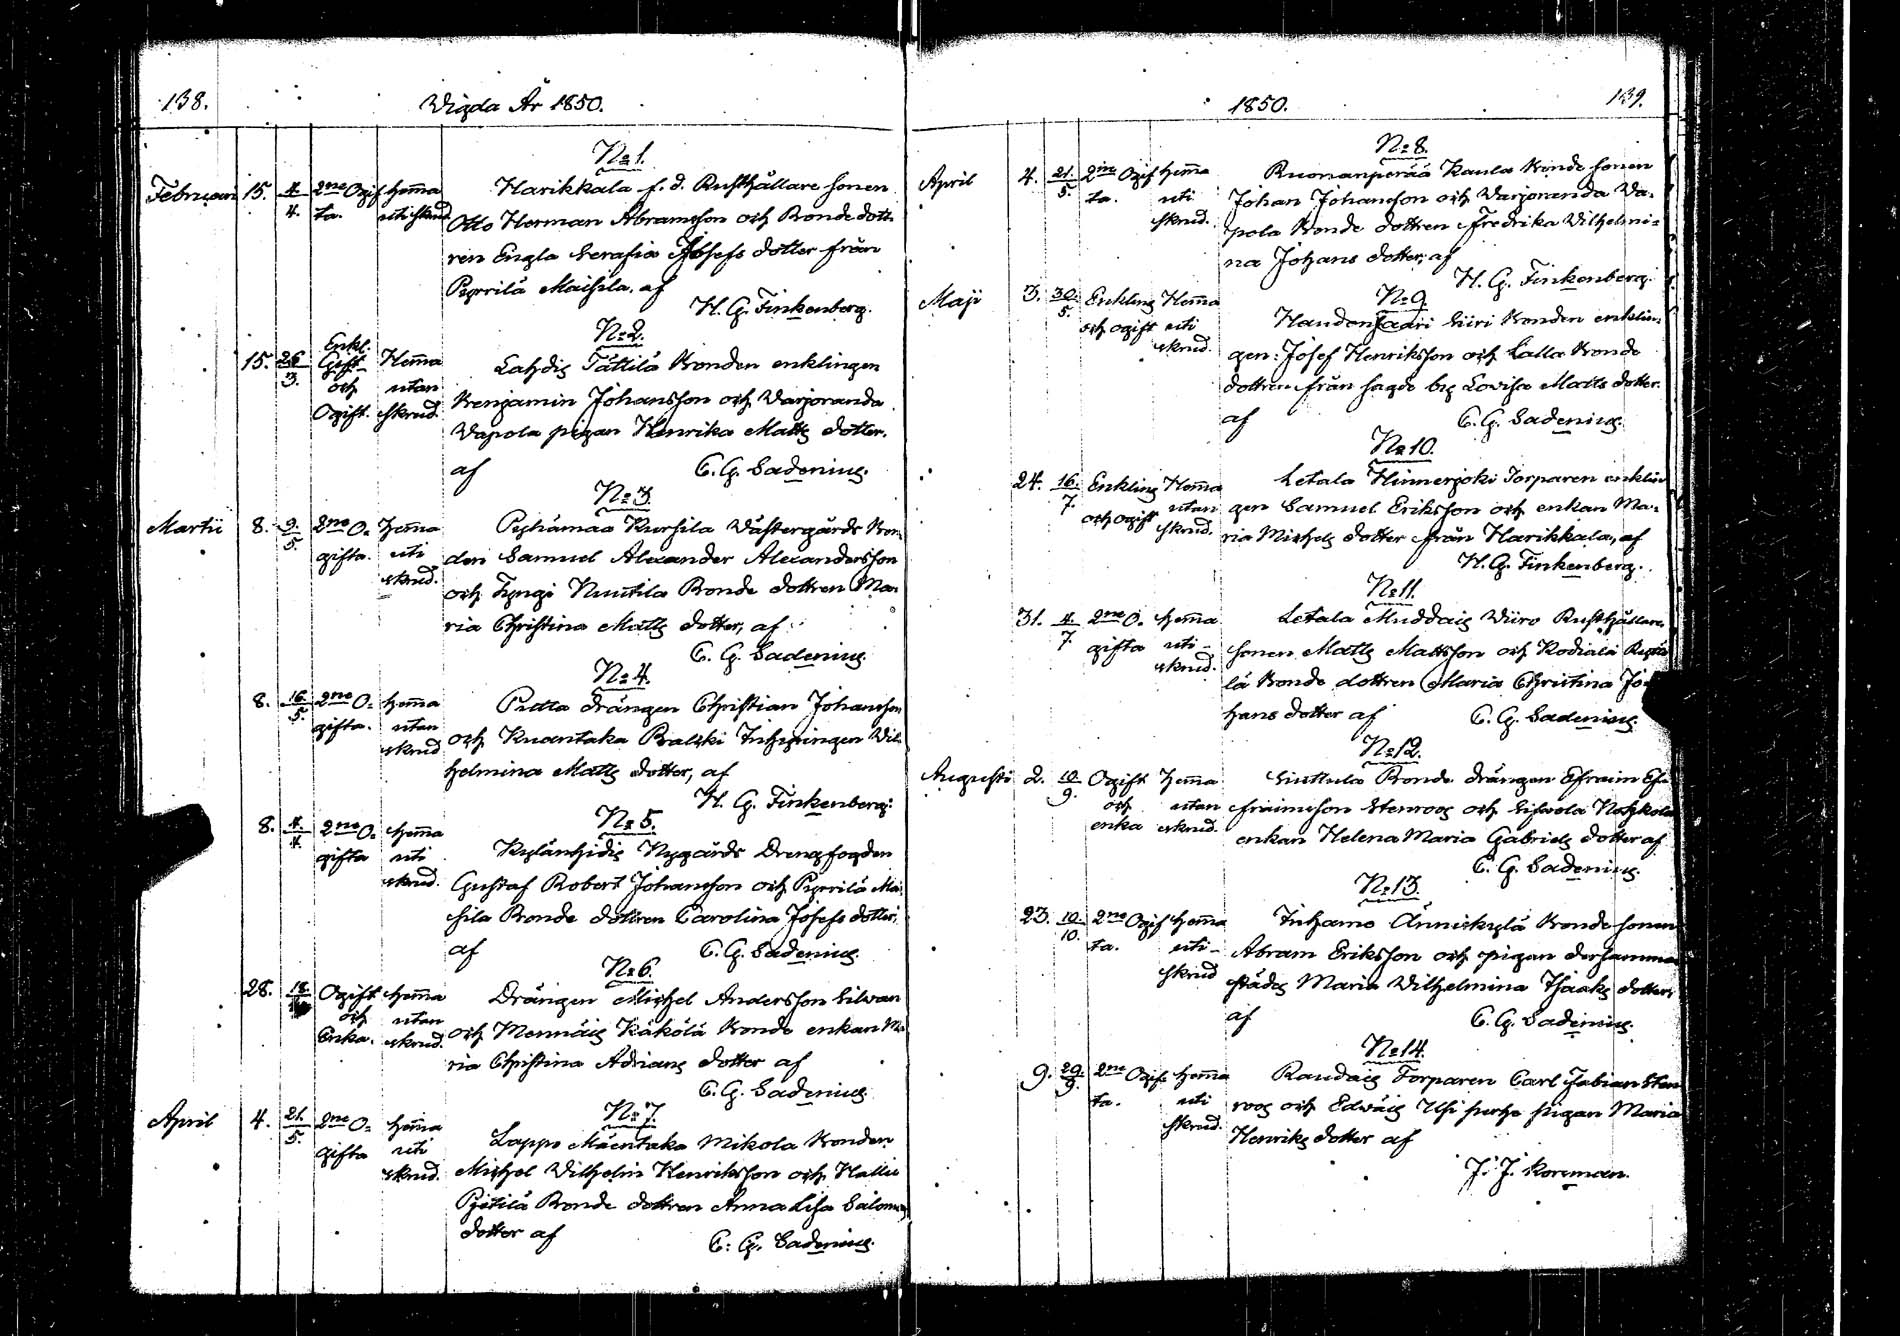 138.
Wigda År 1850.
N:o 1.
Februari 15. 4/4. 2ne Ogif ta. Hem̄a uti skrud.
Harikkala f. d. Rusthållare sonen
Otto Herman Abramsson och Bonde dott
ren Engla Serafia Josefs dotter från
Pyrrilä Maisila, af
H. G. Finkenberg.
N:o 2.
15. 26/3. Enkl. Gift och Ogift. Hem̄a utan skrud.
Lahdis Tättilä Bonden enklingen
Benjamin Johansson och Warjoranda
Wapola pigan Henrika Matts dotter.
af C. G. Sadenius.
N:o 3.
Martii 8. 9/5. 2ne O= gifta. Hem̄a uti skrud.
Pyhämaa Kursila Wästergårds Bon
den Samuel Alexander Alexandersson
och Tyngi Nuutila Bonde dottren Ma=
ria Christina Matts dotter, af
C. G. Sadenius.
N:o 4.
8. 16/5. 2ne O= gifta. Hem̄a utan skrud
drängen Christian Johansson
och Knantaka Inhysingen Wil
helmina Matts dotter, af
H. G. Finkenberg.
N:o 5.
8. 4/4. 2ne O= gifta Hem̄a uti skrud.
Kylänhidis Nygårds Drengfogden
Gustaf Robert Johansson och Pyrrilä Mai
sila Bonde dottren Carolina Josefs dotter.
af C. G. Sadenius.
N:o 6.
28. 18. Ogift och Enka. Hem̄a utan skrud.
Drängen Michel Andersson Silwan
och Mennäis Käkölä Bonde enkan Ma
ria Christina Adrians dotter af
C. G. Sadenius
N:o 7.
April 4. 21/5. 2ne O= gifta Hem̄a uti skrud.
Lappo Mäentaka Mikola Bonden
Michel Wilhelm Henriksson och Hallu
Pietilä Bonde dottren Anna Lisa Salomons
dotter af
C. G. Sadenius.
1850.
139.
N:o 8.
April 4. 21/5. 2ne Ogif ta. Hem̄a uti skrud.
Ruonanperää Kaula Bonde sonen
Johan Johansson och Warjoranda Wa=
pola Bonde dottren Fredrika Wilhelmi=
na Johans dotter; af
H. G. Finkenberg.
N:o 9.
Maji 3. 30/5. Enkling och ogift Hem̄a uti skrud.
Haudonsaari Siiri Bonden enklin=
gen: Josef Henriksson och Lalla Bonde
dottren från sagde by Lovisa Matts dotter.
af C. G. Sadenius.
N:o 10.
24. 16/7. Enkling och ogift Hem̄a utan skrud.
Letala Hinnerjoki Torparen enklin
gen Samuel Eriksson och enkan Ma=
ria Michels dotter från Harikkala, af
H. G. Finkenberg.
N:o 11.
31. 4/7. 2ne O= gifta Hem̄a uti skrud.
Letala Muddais Wiiro Rusthållare
sonen Matts Mattsson och Kodiala
lä Bonde dottren Maria Christina Jo
hans dotter af C. G. Sadenius.
N:o 12.
Augusti 2. 10/9. Ogift och enka Hem̄a utan skrud.
Sinttula Bonde drängen Efraim Ef=
fraimsson Stenroos och
enkan Helena Maria Gabriels dotter af
C. G. Sadenius.
N:o 13.
23. 10/10. 2ne Ogif ta. Hem̄a uti skrud
Inhamo Änniskylä Bonde sonen
Abram Eriksson och pigan dersamma
städes Maria Wilhelmina Isaaks dotter,
af C. G. Sadenius.
N:o 14.
9. 29/9. 2ne Ogif ta. Hem̄a uti skrud.
Raudais Torparen Carl Fabian Sten
roos och Edwäis pigan Maria
Henriks dotter af
J. J. Koreman.